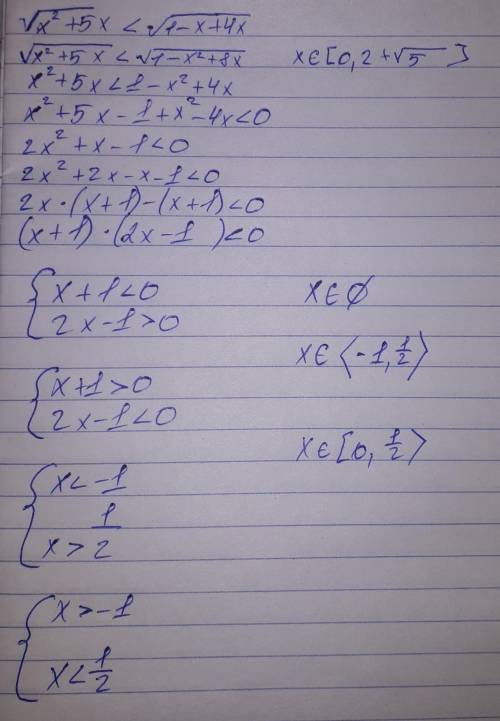 √x²+5x < √1-x+4x
√x²+5x < √1-x²+8x x∈[0,2+√5]
x²+5x<1-x²+4x
x²+5x-1+x²-4x<0
2x²+x-1<0
2x²+2x-x-1<0
2x·(x+1)-(x+1)<0
(x+1)·(2x-1)<0
{x+1<0 x∈∅
2x-1>0
x∈⟨-1,1/2⟩
{x+1>0
2x-1<0
x∈[0,1/2⟩
{x<-1
1
x>2
{x>-1
x<1/2